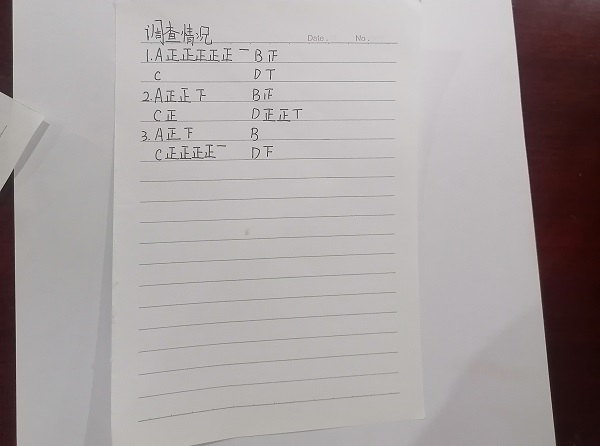 调查情况 Date. No.
1. A 正正正正正一 B 正
C D T
2. A 正正下 B 正
C 正 D 正正T
3. A 正下 B
C 正正正正一 D 下